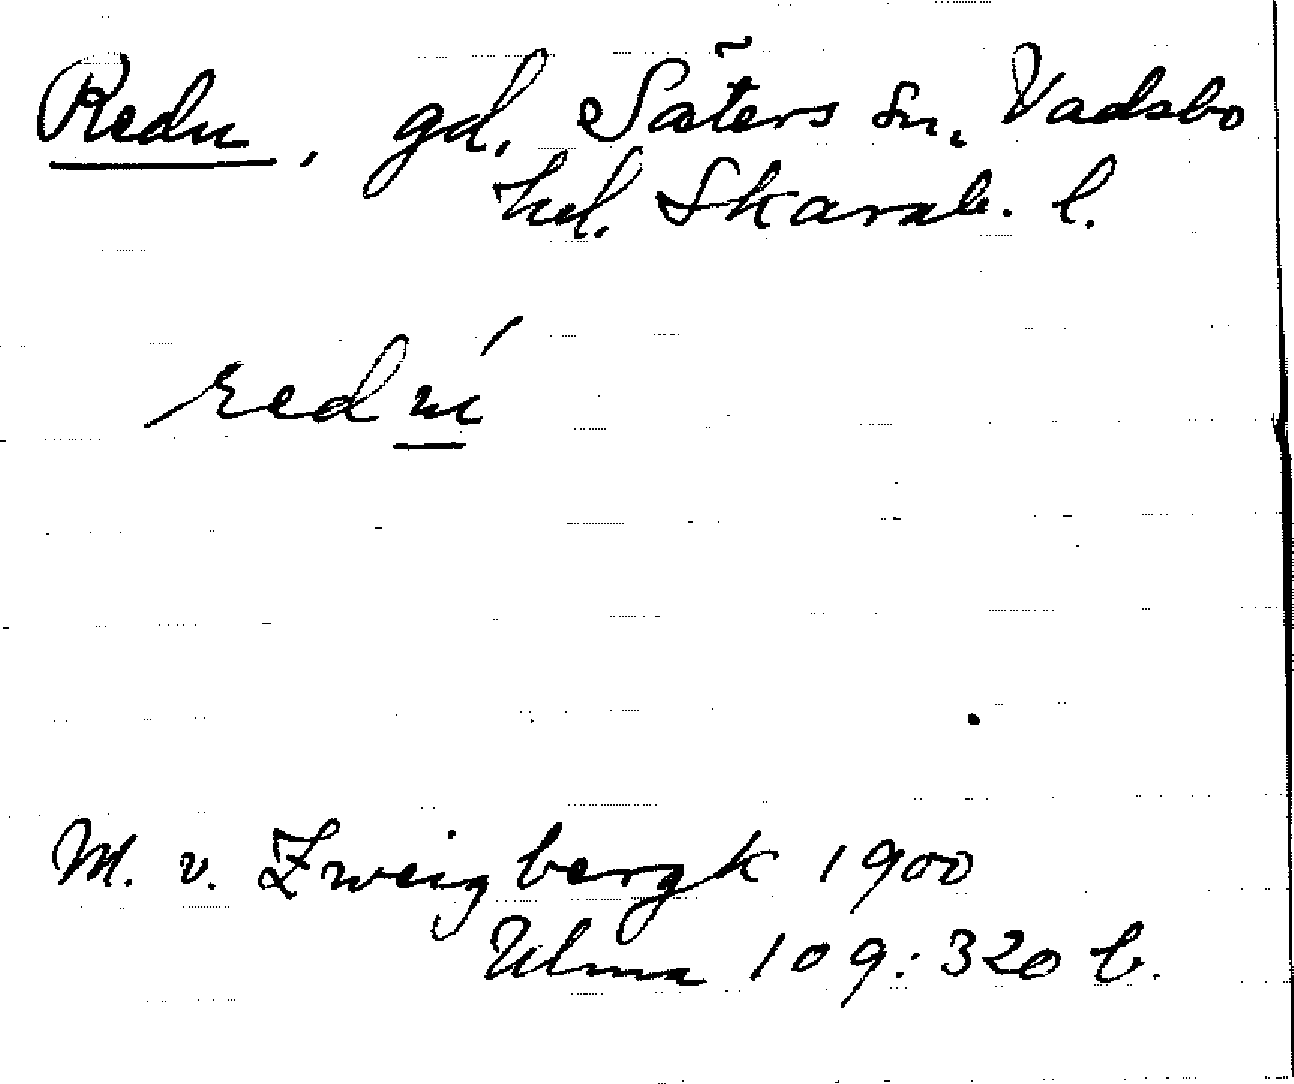 Redu, gd. Säters sn. Vadsbo
hd. Skarab. l.
redu´
M. v. Zweigbergk 1900
Ulma 109:320 b.